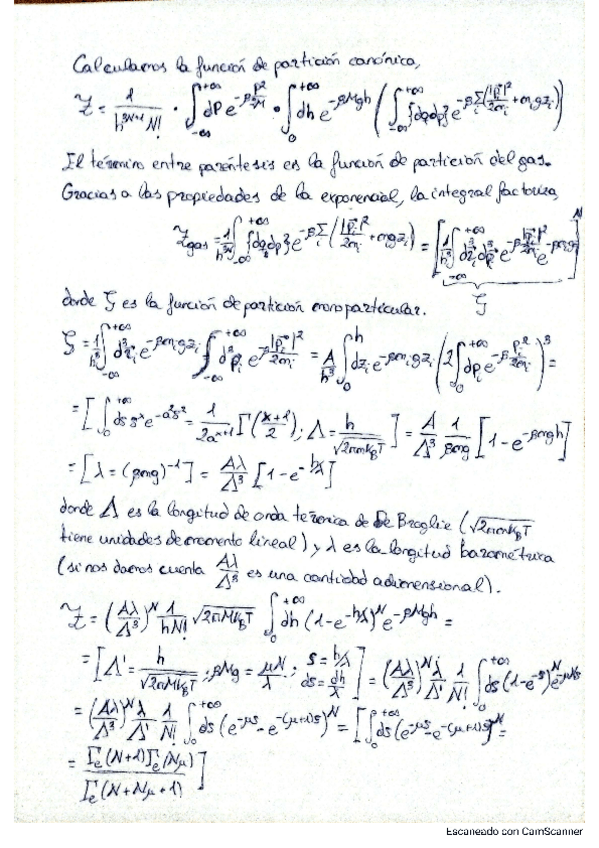 Calculamos la función de partición canónica,
Z = 1/(h^{3N+1} N!) · ∫_{-∞}^{+∞} dP e^{-β P²/2M} · ∫_0^{+∞} dh e^{-βMgh} ( ∫_{-∞}^{+∞} {dqdp} e^{-β Σ_i (|p_i|²/2m_i + mgz_i)} )
El término entre paréntesis es la función de partición del gas.
Gracias a las propiedades de la exponencial, la integral factoriza,
Z_gas = 1/h^{3N} ∫_{-∞}^{+∞} {dq dp} e^{-β Σ_i (|p_i|²/2m_i + mgz_i)} = [ 1/h³ ∫_{-∞}^{+∞} d³r_i d³p_i e^{-β |p_i|²/2m_i} e^{-βmgz_i} ]^N
ζ
donde ζ es la función de partición monoparticular.
ζ = 1/h³ ∫_{-∞}^{+∞} d³r_i e^{-βm_i gz_i} ∫_{-∞}^{+∞} d³p_i e^{-β |p_i|²/2m_i} = A/h³ ∫_0^h dz_i e^{-βm_i gz_i} ( 2 ∫_0^{+∞} dp_i e^{-β p_i²/2m_i} )³ =
= [ ∫_0^{+∞} ds s^x e^{-a²s²} = 1/(2a^{x+1}) Γ((x+1)/2) ; Λ = h/√(2πmk_BT) ] = A/Λ³ 1/(βmg) [1 - e^{-βmgh}]
= [λ = (βmg)^{-1}] = Aλ/Λ³ [1 - e^{-h/λ}]
donde Λ es la longitud de onda térmica de De Broglie (√(2πmk_BT)
tiene unidades de momento lineal) y λ es la longitud barométrica
(si nos damos cuenta Aλ/Λ³ es una cantidad adimensional).
Z = (Aλ/Λ³)^N 1/(hN!) √(2πMk_BT) ∫_0^{+∞} dh (1 - e^{-h/λ})^N e^{-βMgh} =
= [ Λ' = h/√(2πMk_BT) ; βMg = μN/λ ; s = h/λ ds = dh/λ ] = (Aλ/Λ³)^N λ/Λ' 1/N! ∫_0^{+∞} ds (1 - e^{-s})^N e^{-μNs}
= (Aλ/Λ³)^N λ/Λ' 1/N! ∫_0^{+∞} ds (e^{-μs} - e^{-(μ+1)s})^N = [ ∫_0^{+∞} ds (e^{-μs} - e^{-(μ+1)s})^N =
= Γ_e(N+1) Γ_e(Nμ) / Γ_e(N+Nμ+1) ]
Escaneado con CamScanner